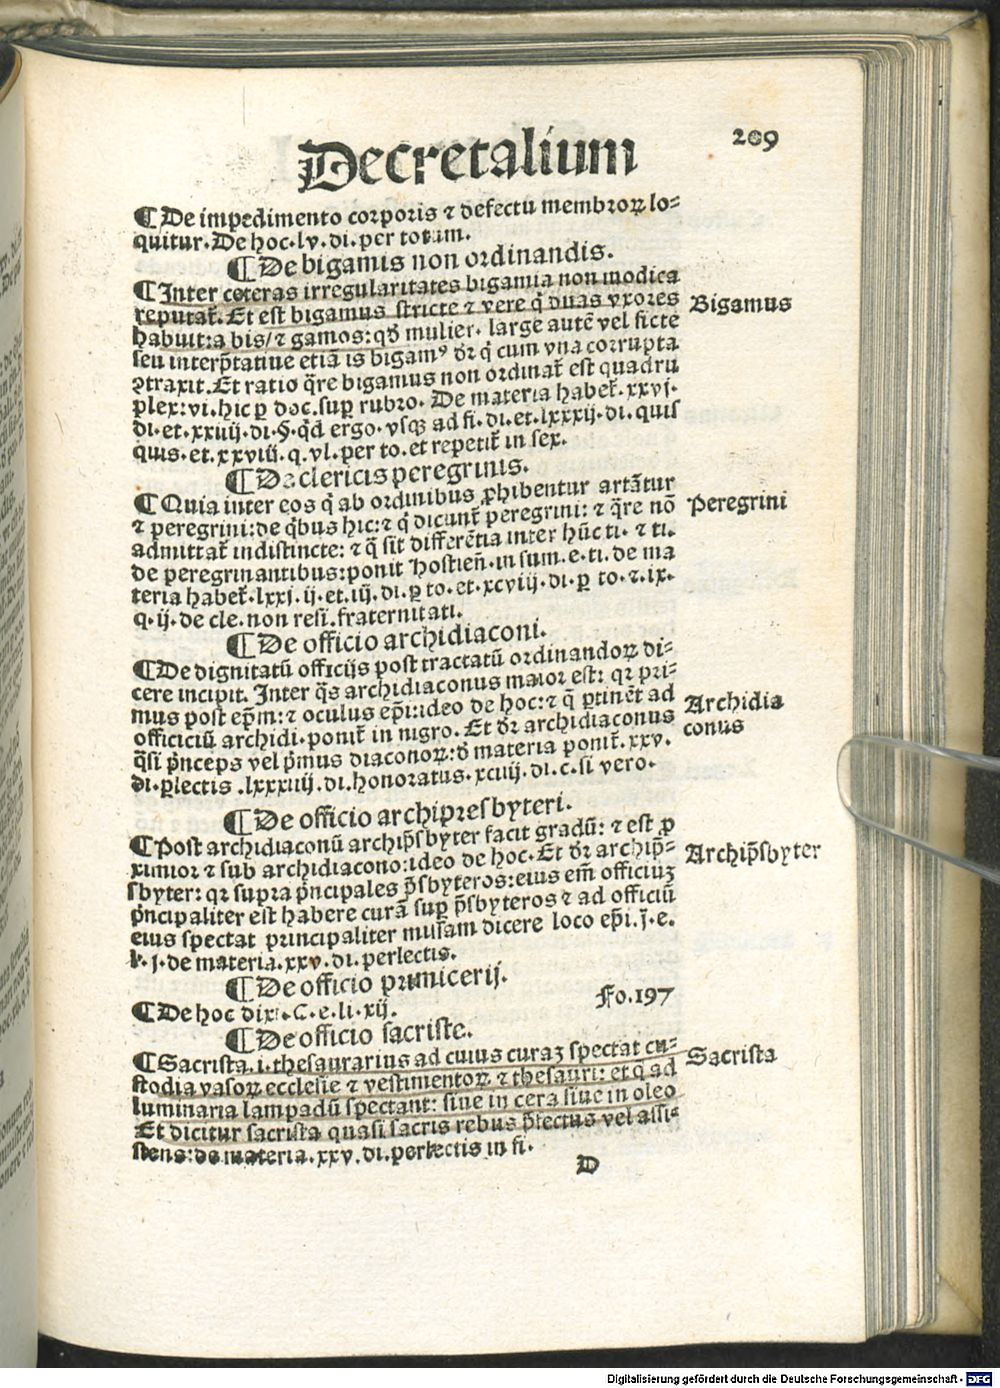 Decretalium
209
¶ De impedimento corporis ⁊ defectu membroꝝ lo⸗
quitur. De hoc. lv. di. per totum.
¶ De bigamis non ordinandis.
¶ Inter ceteras irregularitates bigamia non modica
reputat᷑. Et est bigamus stricte ⁊ vere q̇ duas vxores
Bigamus
habuit: a bis/ ⁊ gamos: qđ mulier. large autē vel ficte
seu interp̄tatiue etiā is bigamꝰ dr̄ q̇ cum vna corrupta
ꝯtraxit. Et ratio q̄re bigamus non ordinat᷑ est quadru
plex: vi. hic ꝑ doc. suꝑ rubro. De materia habet᷑. xxvj.
di. et. xxiiij. di. §. qđ ergo. vsqꝫ ad fi. di. et. lxxxij. di. quis
quis. et. xxviii. q. vl. per to. et repetit᷑ in sex.
¶ De clericis peregrinis.
¶ Quia inter eos q̇ ab ordinibus ꝓhibentur artātur
Peregrini
⁊ peregrini: de q̇bus hic: ⁊ q̇ dicunt᷑ peregrini: ⁊ q̄re nō
admittat᷑ indistincte: ⁊ q̄ sit differētia inter hūc ti. ⁊ ti.
de peregrinantibus: ponit Hostien̄. in sum. e. ti. de ma
teria habet᷑. lxxj. ij. et. iij. di. ꝑ to. et. xcviij. di. ꝑ to. ⁊. ix.
q. ij. de cle. non resi. fraternitati.
¶ De officio archidiaconi.
¶ De dignitatū officijs post tractatū ordinandoꝝ di⸗
cere incipit. Inter q̄s archidiaconus maior est: qꝛ pri⸗
mus post ep̄m: ⁊ oculus ep̄i: ideo de hoc: ⁊ q̄ ꝑtinēt ad
Archidia
conus
officiciū archidi. ponit᷑ in nigro. Et dr̄ archidiaconus
q̄si p̄nceps vel p̄mus diaconoꝝ: đ materia ponit᷑. xxv.
di. ꝑlectis. lxxxiiij. di. honoratus. xciij. di. c. si vero.
¶ De officio archipresbyteri.
¶ Post archidiaconū archip̄sbyter facit gradū: ⁊ est ꝓ
Archip̄sbyter
ximior ⁊ sub archidiacono: ideo de hoc. Et dr̄ archip̄⸗
sbyter: qꝛ supra p̄ncipales p̄sbyteros: eius em̄ officiuꝫ
p̄ncipaliter est habere curā suꝑ p̄sbyteros ⁊ ad officiū
eius spectat principaliter missam dicere loco ep̄i. j. e.
l. j. de materia. xxv. di. perlectis.
¶ De officio primicerij.
¶ De hoc dixi. C. e. li. xij.
Fo. 197
¶ De officio sacriste.
¶ Sacrista. i. thesaurarius ad cuius curaꝫ spectat cu⸗
Sacrista
stodia vasoꝝ ecclesie ⁊ vestimentoꝝ ⁊ thesauri: et q̄ ad
luminaria lampadū spectant: siue in cera siue in oleo
Et dicitur sacrista quasi sacris rebus p̄lectus vel assi⸗
stens: de materia. xxv. di. perlectis in fi.
D
Digitalisierung gefördert durch die Deutsche Forschungsgemeinschaft - DFG